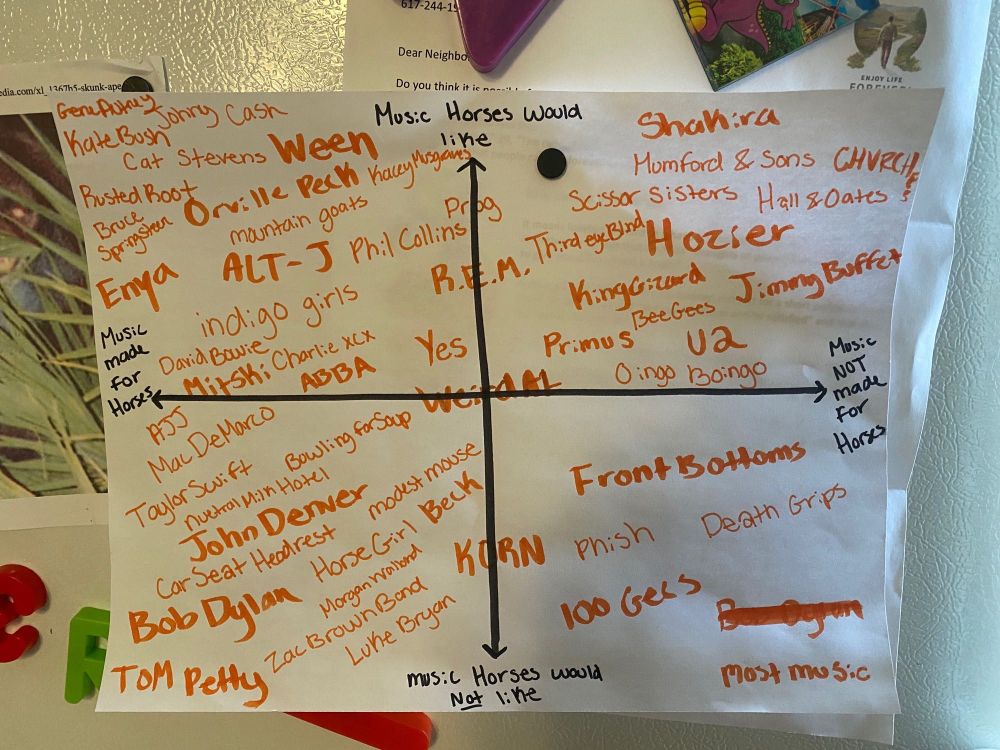 617-244-15
Dear Neighbo
Do you think it is
ENJOY LIFE
FOREVER
edia.com/xl_1367b5-skunk-ape
Music Horses Would
like
Gene Autrey
Johnny Cash
Kate Bush
Cat Stevens
Ween
Kacey Musgraves
Rusted Root
Orville Peck
Bruce
Springsteen
mountain goats
Prog
Enya
ALT-J
Phil Collins
R.E.M.
indigo girls
David Bowie
Charlie xcx
Yes
Mitski
ABBA
Weird AL
Shakira
Mumford & Sons
CHVRCHES
Scissor Sisters
Hall & Oates
Third eye Blind
Hozier
King Gizard
Jimmy Buffet
BeeGees
Primus
U2
Oingo Boingo
Music
made
for
Horses
Music
NOT
made
for
Horses
AJJ
Mac DeMarco
Bowling for Soup
Taylor Swift
Nuetral Milk Hotel
modest mouse
John Denver
Beck
Car Seat Headrest
Horse Girl
KORN
Bob Dylan
Morgan Walland
Zac Brown Band
Luke Bryan
TOM Petty
Front Bottoms
Phish
Death Grips
100 Gecs
Most music
music Horses would
Not like